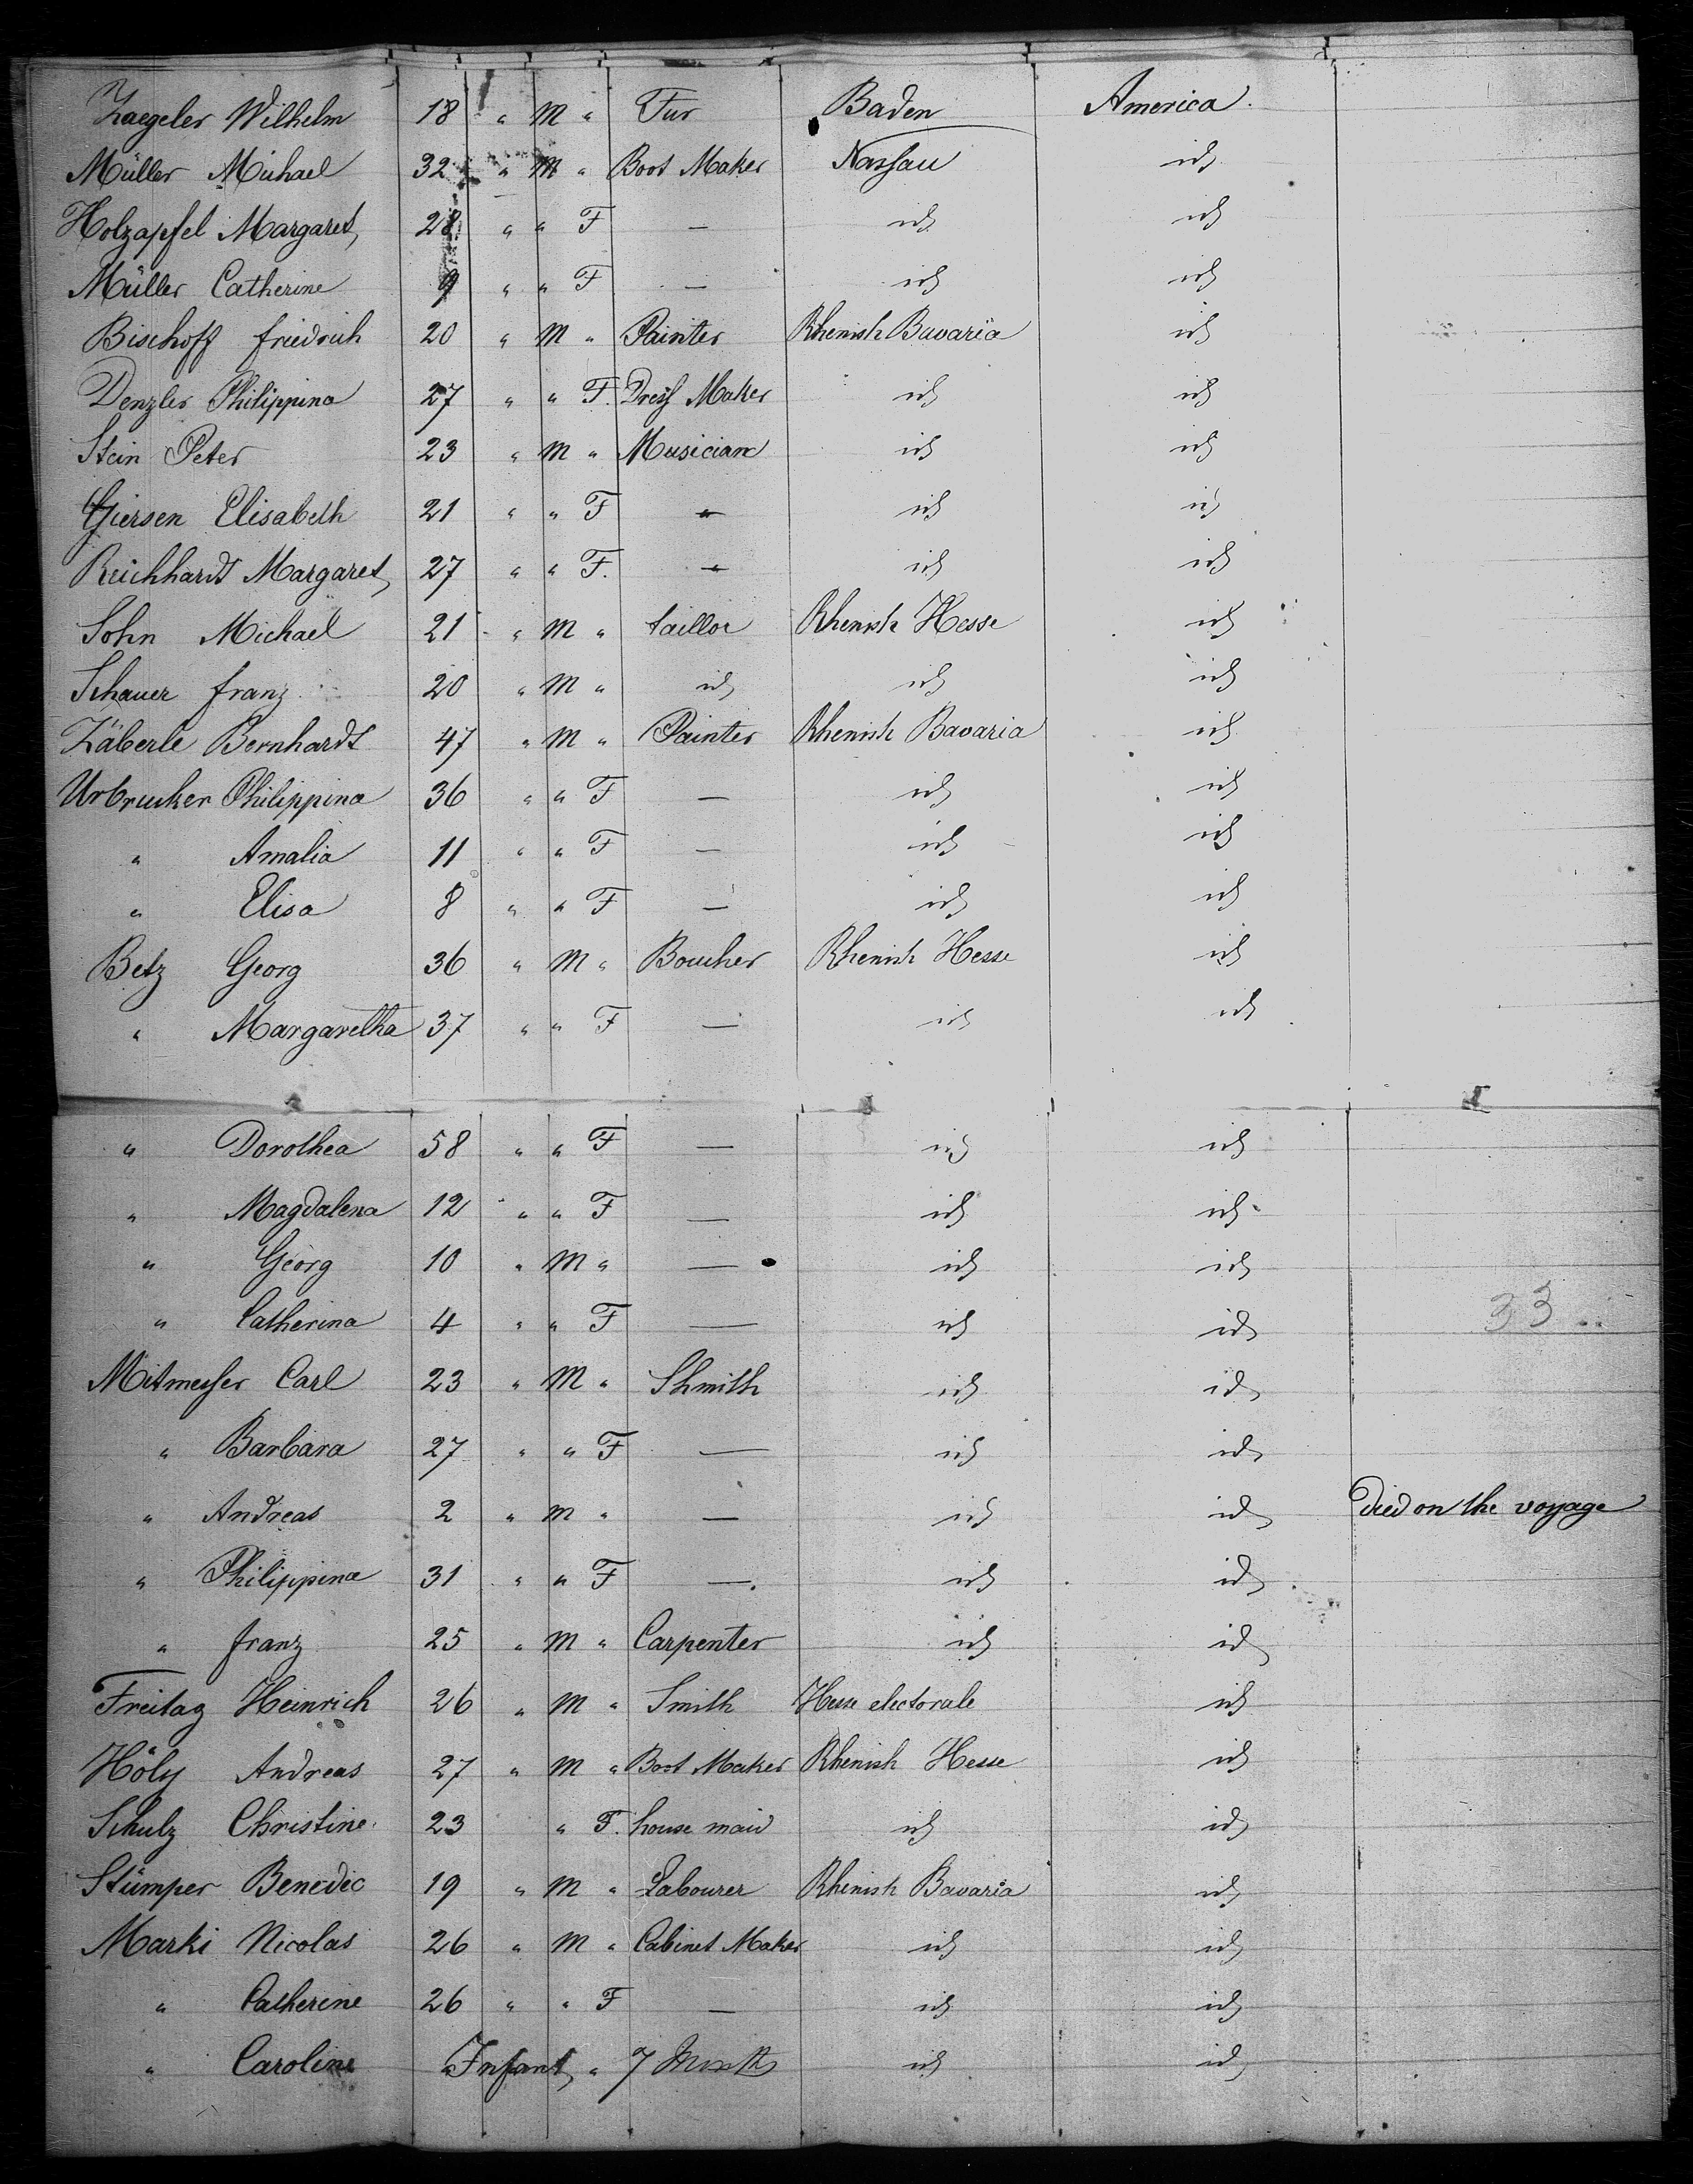 Zaegeler Wilhelm 18 " M " Fur Baden America
Müller Michael 32 " M " Boot Maker Nassau id
Holzapfel Margaret 28 " " F — id id
Müller Catherine 9 " " F — id id
Bischoff friedrich 20 " M " Painter Rhenish Bavaria id
Denzler Philippina 27 " " F. Dress Maker id id
Stein Peter 23 " M " Musician id id
Giersen Elisabeth 21 " " F " id id
Reichhardt Margaret 27 " " F. " id id
Sohn Michael 21 " M " taillor Rhenish Hesse id
Schauer franz 20 " M " id id id
Zäberle Bernhardt 47 " M " Painter Rhenish Bavaria id
Urbrucker Philippina 36 " " F — id id
" Amalia 11 " " F — id id
" Elisa 8 " " F — id id
Betz Georg 36 " M " Boucher Rhenish Hesse id
" Margaretha 37 " " F — id id
" Dorothea 58 " " F — id id
" Magdalena 12 " " F — id id
" Georg 10 " M " — id id
" Catherina 4 " " F — id id 33
Mitmesser Carl 23 " M " Shmith id id
" Barbara 27 " " F — id id
" Andreas 2 " M " — id id Died on the voyage
" Philippina 31 " " F — id id
" franz 25 " M " Carpenter id id
Freitag Heinrich 26 " M " Smith Hesse electorale id
Höly Andreas 27 " M " Boot Maker Rhenish Hesse id
Schulz Christine 23 " F. house maid id id
Stümper Benedic 19 " M " Labourer Rhenish Bavaria id
Marki Nicolas 26 " M " Cabinet Maker id id
" Catherine 26 " " F — id id
" Caroline " Infant " 7 Month id id